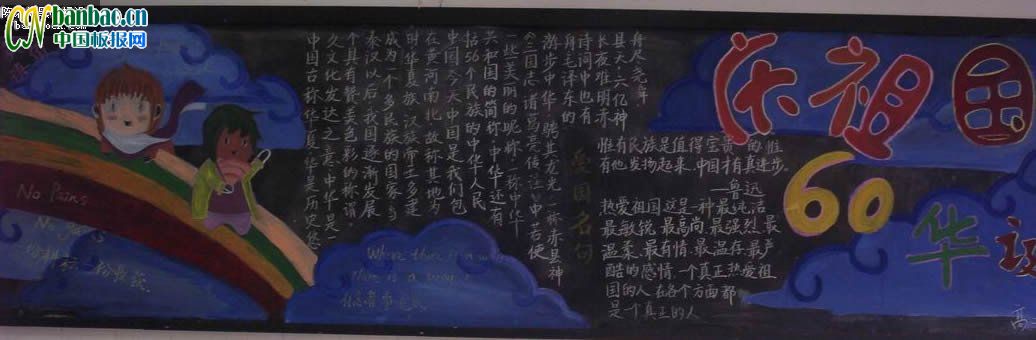 CN banbac.cn
中国板报网
No Pains
No
一份耕耘,一份收获
中国古称华夏,华夏是历史悠
久,文化发达之意,中华是一
个具有赞美色彩的称谓。
秦汉以后,我国逐渐发展
成为一个多民族的国家,当
时华夏族(汉族)帝王多建
在黄河南北,故称其地为
中国,今天中国是我们包
括56个民族的中华人民
共和国的简称,中华还有
一些美丽的昵称,一称中华,
《三国志·诸葛亮传注》中若使
游步中华,骋其龙光,一称赤县神
舟,毛泽东的
诗词中也有
长夜难明赤
县天,六亿神
舟尽尧舜
Where there is a will
There is a way
有志者事竟成
爱国名句
惟有民族是值得宝贵的,惟
有他发扬起来,中国才有真进步。
——鲁迅
热爱祖国,这是一种最纯洁、
最敏锐、最高尚、最强烈、最
温柔、最有情、最温存、最严
酷的感情,一个真正热爱祖
国的人,在各个方面都
是一个真正的人
庆祖国
60
华诞
高